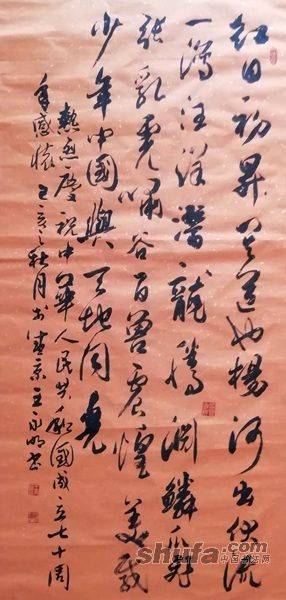 紅日初昇其道也楊河出伏流
一瀉汪洋潛龍騰淵鱗爪飛
張乳虎嘯谷百獸震惶美哉
少年中國與天地同
熱烈慶祝中華人民共和國成立七十周
年感懷己亥之秋月於京王永明書
shufa.com
中国书法网